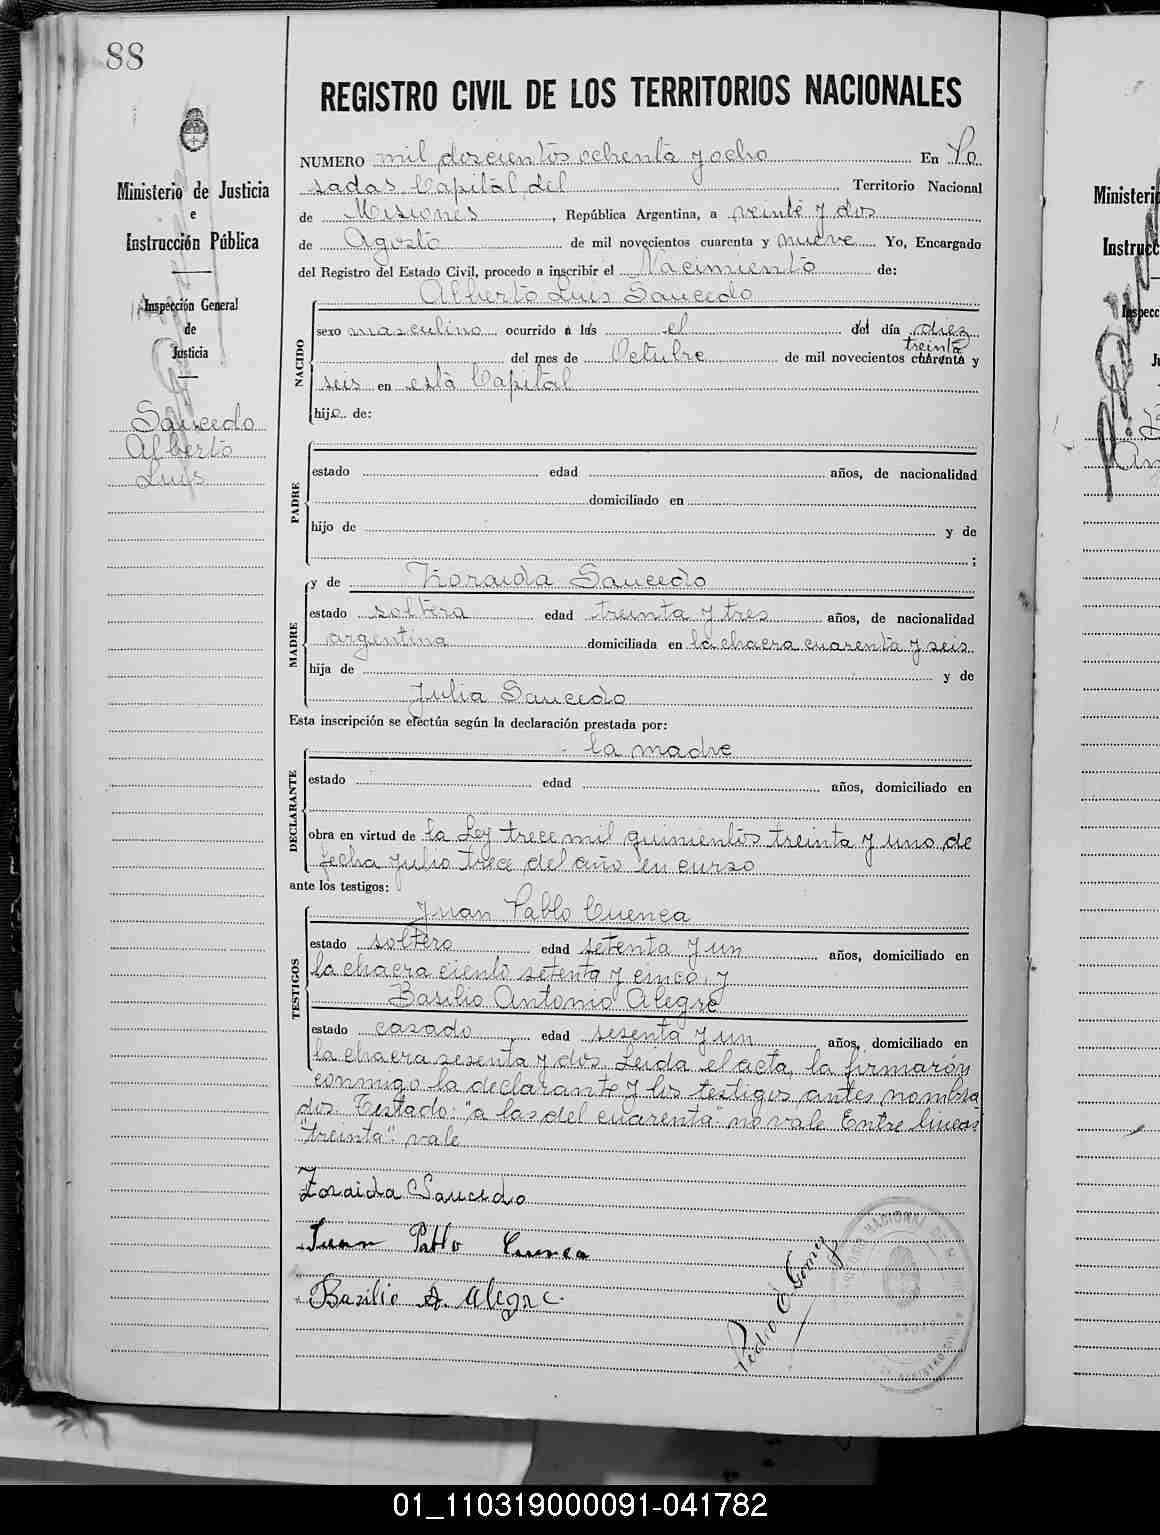 88
REGISTRO CIVIL DE LOS TERRITORIOS NACIONALES
Ministerio de Justicia
e
Instrucción Pública
Inspección General
de
Justicia
Saucedo
Alberto
Luis
NUMERO mil doscientos ochenta y ocho En Po
sadas Capital del Territorio Nacional
de Misiones, República Argentina, a veinte y dos
de Agosto de mil novecientos cuarenta y nueve Yo, Encargado
del Registro del Estado Civil, procedo a inscribir el Nacimiento de:
Alberto Luis Saucedo
NACIDO
sexo masculino ocurrido a las el del día diez
treinta
del mes de Octubre de mil novecientos cuarenta y
seis en esta Capital
hijo de:
PADRE
estado edad años, de nacionalidad
domiciliado en
hijo de y de
;
y de Zoraida Saucedo
MADRE
estado soltera edad treinta y tres años, de nacionalidad
argentina domiciliada en la chacra cuarenta y seis
hija de y de
Julia Saucedo
Esta inscripción se efectúa según la declaración prestada por:
la madre
DECLARANTE
estado edad años, domiciliado en
obra en virtud de la Ley trece mil quinientos treinta y uno de
fecha julio trece del año en curso
ante los testigos:
Juan Pablo Cuenca
TESTIGOS
estado soltero edad setenta y un años, domiciliado en
la chacra ciento setenta y cinco, y
Basilio Antonio Alegre
estado casado edad sesenta y un años, domiciliado en
la chacra sesenta y dos. Leida el acta, la firmarón
conmigo la declarante y los testigos antes nombra
dos. Testado: "a las del cuarenta" no vale Entre lineas:
"treinta" vale
Zoraida Saucedo
Juan Pablo Cuenca
Basilio A. Alegre.
Pedro E. Gomez
Ministerio
Instrucc
01_110319000091-041782